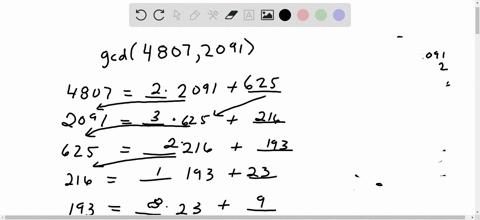 gcd(4807,2091)
.091
2
4807 = 2·2091 + 625
2091 = 3·625 + 216
625 = 2·216 + 193
216 = 1 193 + 23
193 = 8·23 + 9